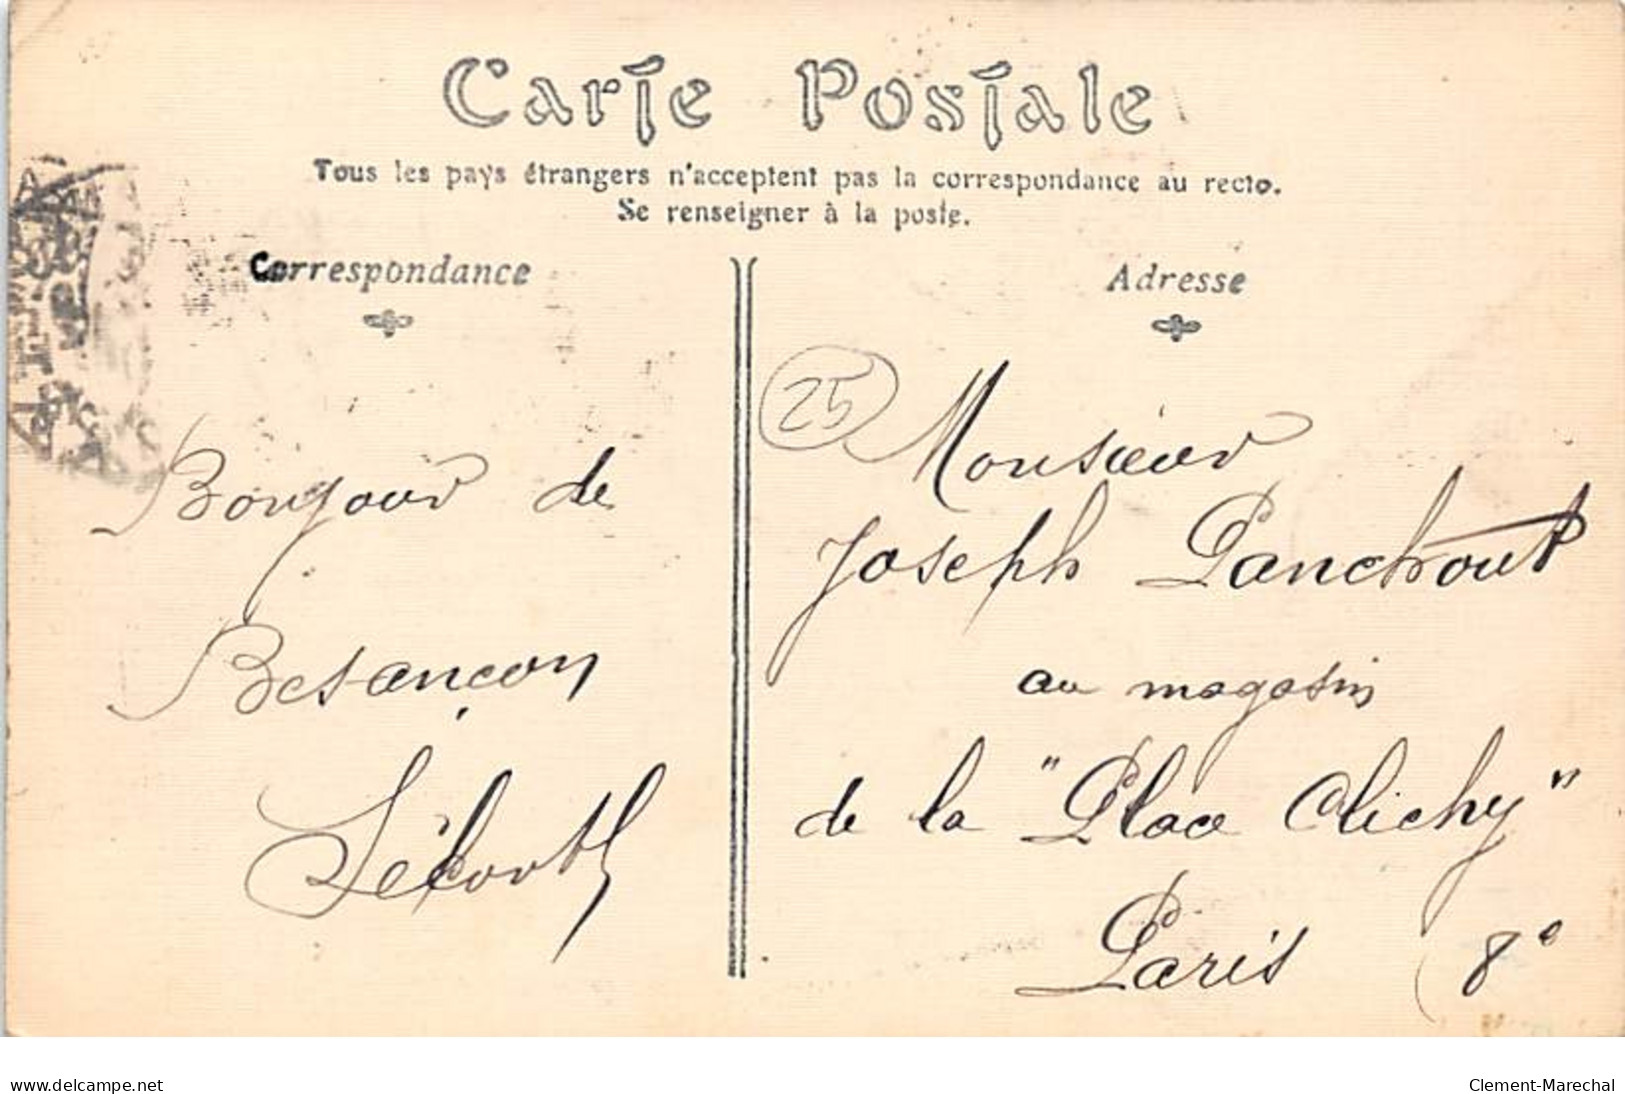 Carte Postale
Tous les pays étrangers n'acceptent pas la correspondance au recto.
Se renseigner à la poste.
Correspondance
Adresse
25
Bonjour de
Besançon
Monsieur
Joseph Panchout
au magasin
de la "Place Clichy"
Paris (8e
www.delcampe.net
Clement-Marechal